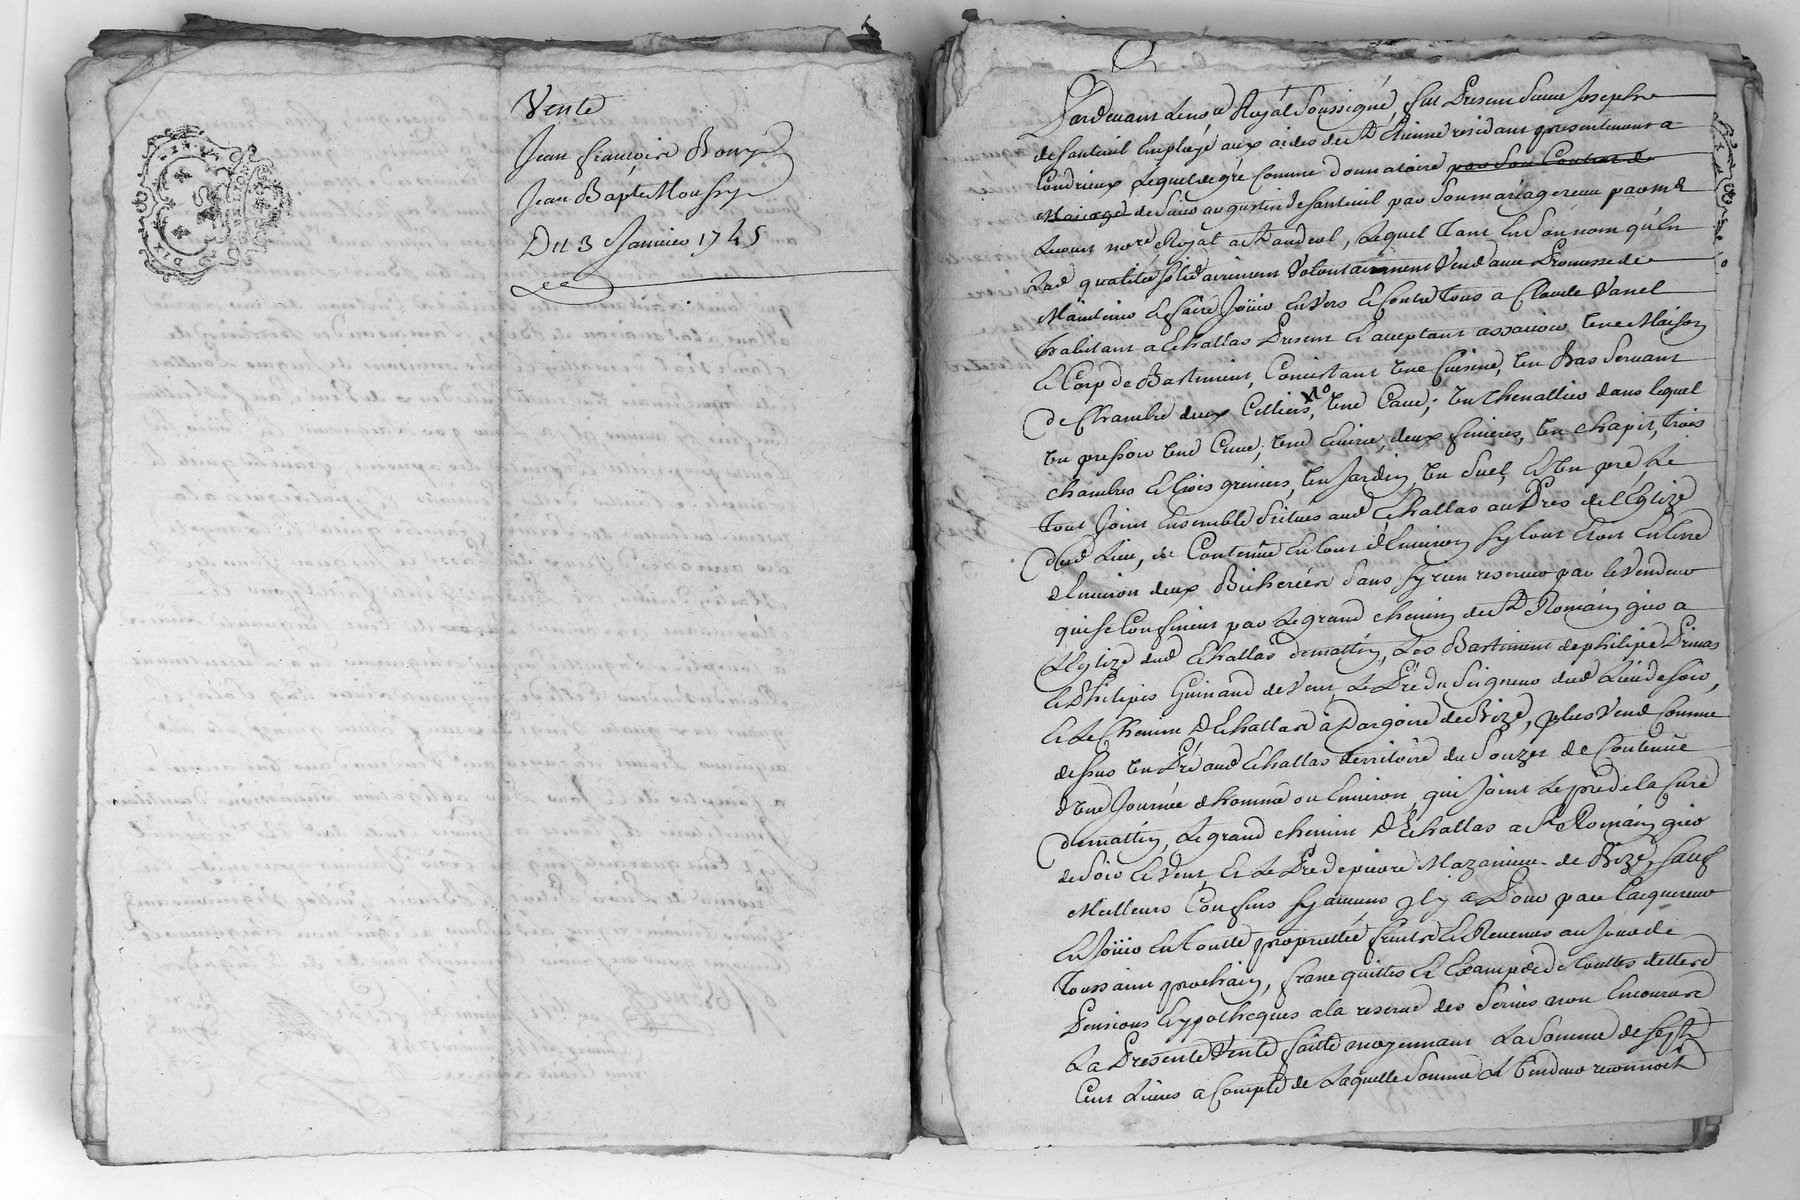 Vente
Jean françoise Bony
Jean Bapte Moussy
Du 3 Janvier 1745
Pardevant Le no.re Royal Soussigné, fut Present Sieur Joseph
de Santeuil Employé aux aides de St Etienne residant presentement a
Condrieux Lequel de gré Comme Donnataire par Son Contrat de
Mariage de Sieur augustin de Santeuil par Son mariage receu par me
notre Royal a, Lequel Tant En Son nom qu'En
Lad qualité solidairement Volontairement Vend avec Promesse de
Maintenir Et faire Jouir Envers Et Contre Tous a Claude Vanel
habitant a Echallas Present Et aceptant assavoir Une Maison
Et Corp de Bastiment, Consistant Une Cuisine, Un Bas Servant
de Chambre deux Celliers, Une Cave; Un Chenallier dans lequel
Un pressoir Une Cuve, Une Ecurie, deux finieres, Un Chapit, trois
chambres Et trois greniers, Un Jardin, Un Suel, Et Un pré Le
Tout Joint Ensemble Scitués aud Echallas au Pres de l'Eglize
dud Lieu, de Contenue En tout d'Environ
d'Environ deux Bicherées Sans Sy rien reserver par le Vendeur
qui se Confinent par Le grand chemin de St Romain gier a
L'Eglize dud Echallas de mattin, Les Bastiment de philipe Primas
Et Philipes Guinand de Vent, Le Pré du Seigneur dud Lieu de Soir,
Et Le Chemin D'Echallas à Dargoire de Bize, plus Vend Comme
dessus Un Pré aud Echallas territoire du Souzet de Contenue
d'Une Journée d'homme ou Environ, qui Joint Le pré de la Cure
de mattin, Le grand chemin D'Echallas a St Romain gier
de Soir Et Vent, Et Le Pré de pierre Mazancieu de Bize, Sauf
Meilleurs Confins Sy aucuns y a Pour par L'acquereur
En Jouir En Toutte proprietté fruits Et Revenus au Jour de
Toussaint prochain, franc quitte Et Exempt de Touttes dettes
Pensions hypotheques a la reserve des Servis non Encourus
La Presente Vente faitte moyennant La Somme de Sept
Cent Livres a Compte de Laquelle Somme Le Vendeur reconnoit